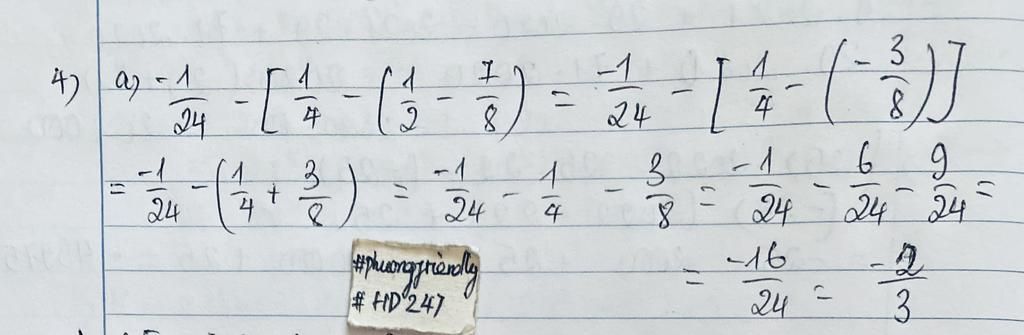 4) a) -1/24 - [1/4 - (1/2 - 7/8) = -1/24 - [1/4 - (-3/8)]
= -1/24 - (1/4 + 3/8) = -1/24 - 1/4 - 3/8 = -1/24 - 6/24 - 9/24 =
= -16/24 = -2/3
#phuongfriendly
# HD 247